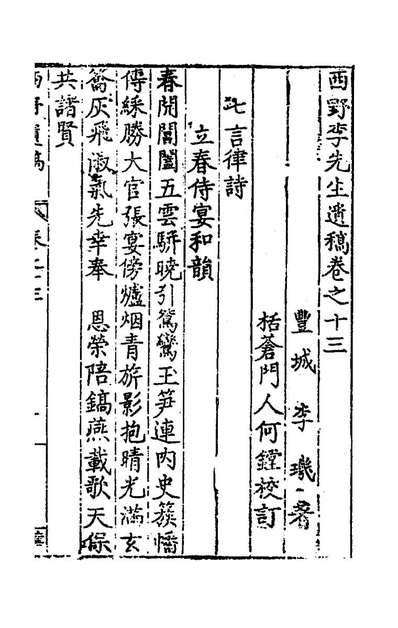 西野李先生遺稿卷之十三
豐城 李璣 著
栝蒼門人何鏜校訂
七言律詩
立春侍宴和韻
春開閶闔五雲駢曉引鴛鸞玉笋連內史簇幡
傳綵勝大官張宴傍爐烟青旂影抱晴光滿玄
籥灰飛淑氣先幸奉 恩榮陪鎬燕載歌天保
共諸賢
西野遺稿 卷之十三 一